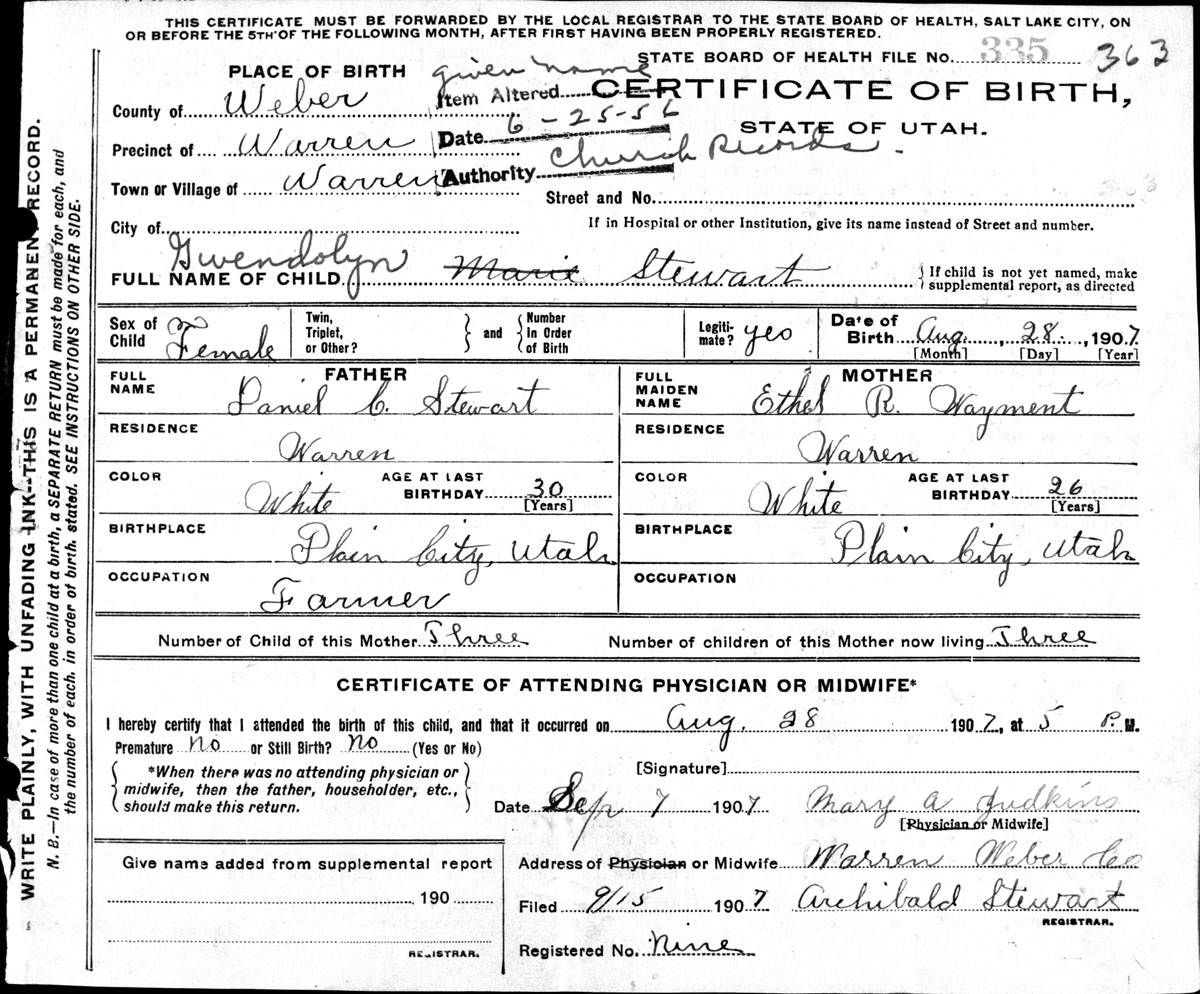 THIS CERTIFICATE MUST BE FORWARDED BY THE LOCAL REGISTRAR TO THE STATE BOARD OF HEALTH, SALT LAKE CITY, ON
OR BEFORE THE 5TH OF THE FOLLOWING MONTH, AFTER FIRST HAVING BEEN PROPERLY REGISTERED.
STATE BOARD OF HEALTH FILE NO. 335 363
PLACE OF BIRTH
given name
Item Altered
CERTIFICATE OF BIRTH,
County of Weber
Date 6-25-56
STATE OF UTAH.
Precinct of Warren
Authority Church Records.
Town or Village of Warren
Street and No. 363
City of
If in Hospital or other Institution, give its name instead of Street and number.
FULL NAME OF CHILD Gwendolyn Marie Stewart
If child is not yet named, make
supplemental report, as directed
Sex of Child Female
Twin, Triplet, or Other?
and
Number In Order of Birth
Legiti-mate? yes
Date of Birth Aug. 28, 1907
[Month] [Day] [Year]
FATHER
FULL NAME Daniel C. Stewart
RESIDENCE
Warren
COLOR White
AGE AT LAST BIRTHDAY 30
[Years]
BIRTHPLACE
Plain City, Utah
OCCUPATION
Farmer
MOTHER
FULL MAIDEN NAME Ethel R. Wayment
RESIDENCE
Warren
COLOR White
AGE AT LAST BIRTHDAY 26
[Years]
BIRTHPLACE
Plain City, Utah
OCCUPATION
Number of Child of this Mother Three
Number of children of this Mother now living Three
CERTIFICATE OF ATTENDING PHYSICIAN OR MIDWIFE*
I hereby certify that I attended the birth of this child, and that it occurred on Aug. 28 1907, at 5 P.M.
Premature No or Still Birth? No (Yes or No)
*When there was no attending physician or
midwife, then the father, householder, etc.,
should make this return.
[Signature]
Date Sep 7 1907 Mary A Judkins
[Physician or Midwife]
Give name added from supplemental report
190
REGISTRAR.
Address of Physician or Midwife Warren Weber Co
Filed 9/15 1907 Archibald Stewart
REGISTRAR.
Registered No. Nine
WRITE PLAINLY, WITH UNFADING INK--THIS IS A PERMANENT RECORD.
N. B.—In case of more than one child at a birth, a SEPARATE RETURN must be made for each, and
the number of each, in order of birth, stated. SEE INSTRUCTIONS ON OTHER SIDE.